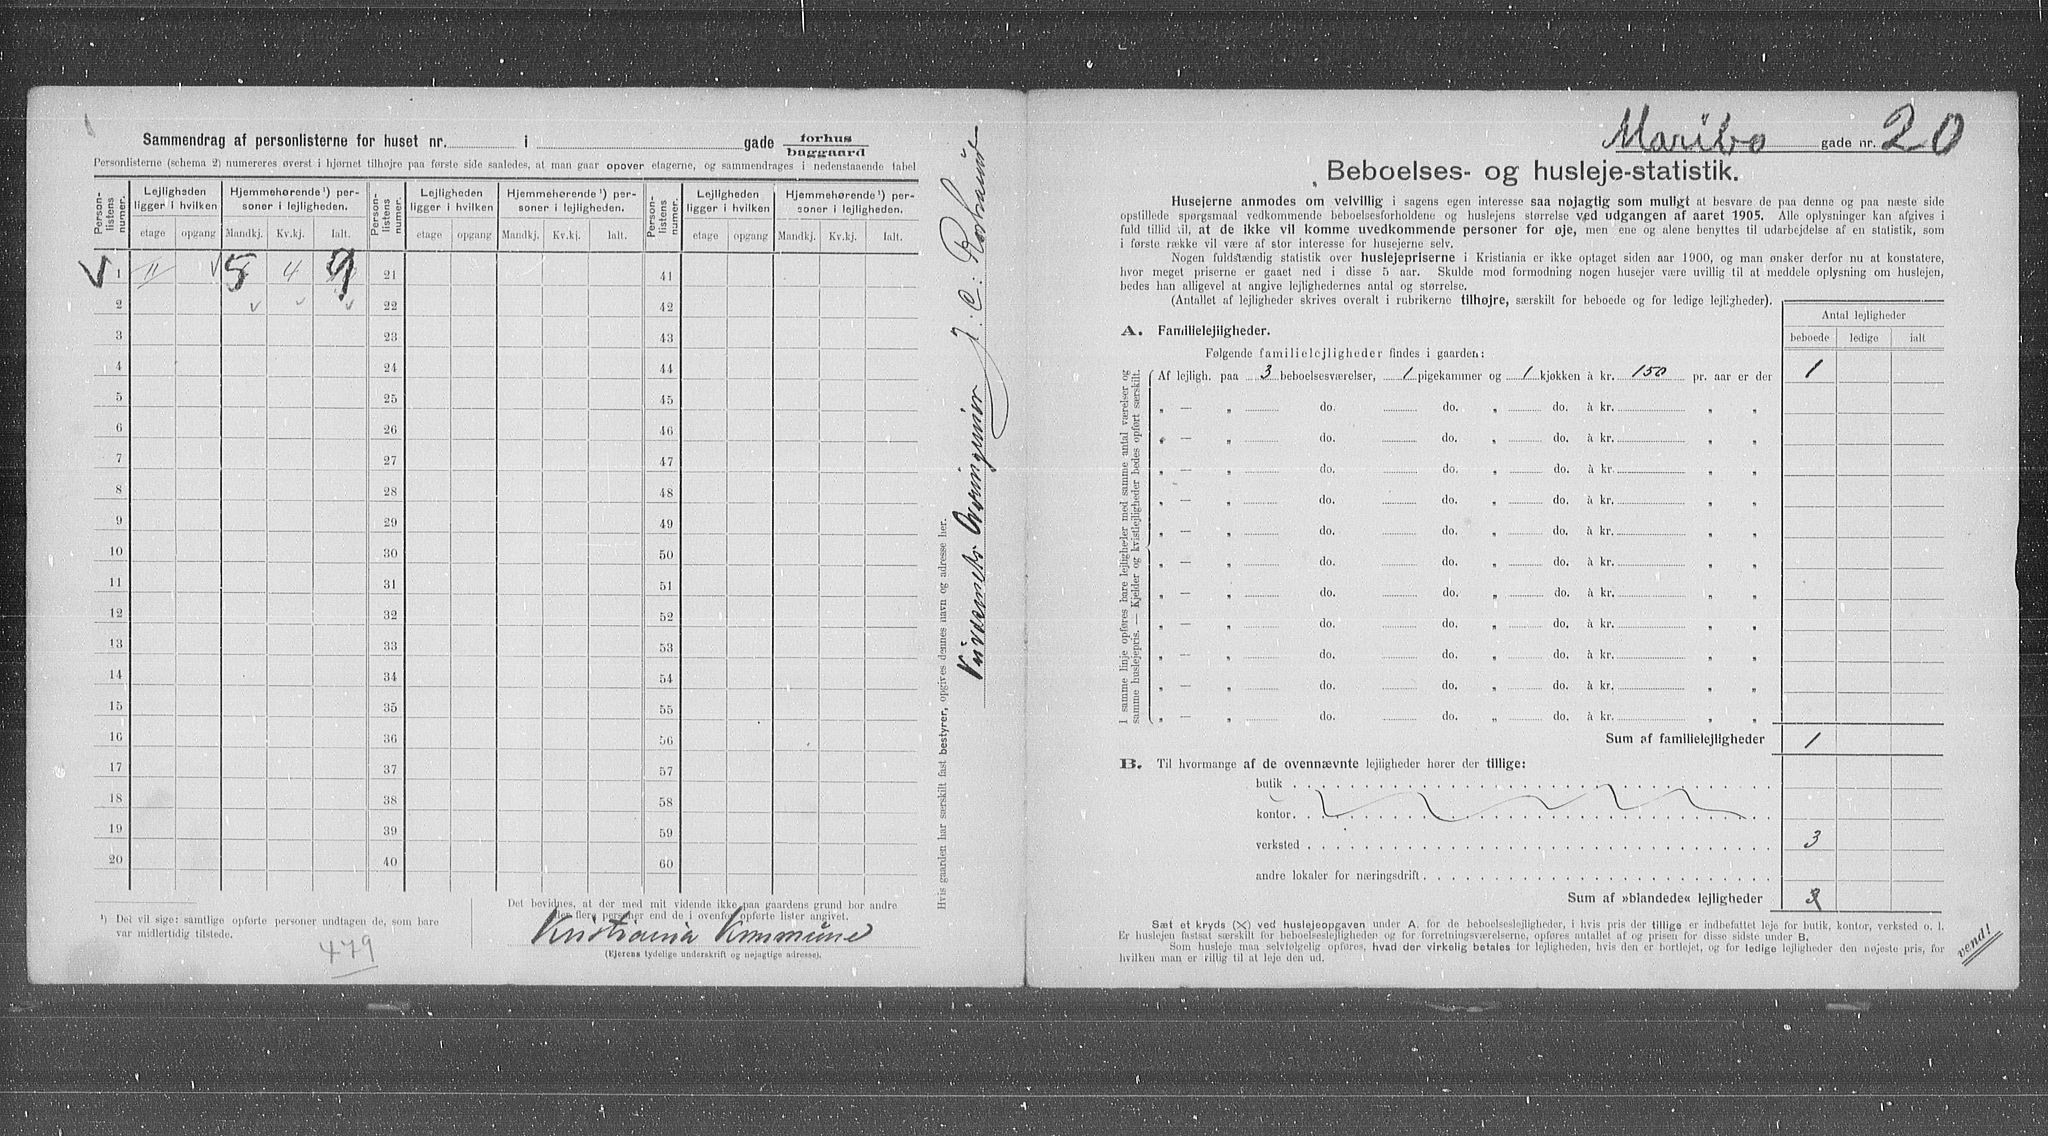 Sammendrag af personlisterne for huset nr. i gade forhus
baggaard
Personlisterne (schema 2) numereres øverst i hjørnet tilhøjre paa første side saaledes, at man gaar opover etagerne, og sammendrages i nedenstaaende tabel
Person-listens nummer. Lejligheden ligger i hvilken Hjemmehørende¹) personer i lejligheden. Person-listens nummer. Lejligheden ligger i hvilken Hjemmehørende¹) personer i lejligheden. Person-listens nummer. Lejligheden ligger i hvilken Hjemmehørende¹) personer i lejligheden.
etage opgang Mandkj. Kv.kj. Ialt. etage opgang Mandkj. Kv.kj. Ialt. etage opgang Mandkj. Kv.kj. Ialt.
1 11 5 4 9 21 41
2 22 42
3 23 43
4 24 44
5 25 45
6 26 46
7 27 47
8 28 48
9 29 49
10 30 50
11 31 51
12 32 52
13 33 53
14 34 54
15 35 55
16 36 56
17 37 57
18 38 58
19 39 59
20 40 60
¹) Det vil sige: samtlige opførte personer undtagen de, som bare
var midlertidig tilstede.
479
Det bevidnes, at der med mit vidende ikke paa gaardens grund bor andre
eller flere personer end de i ovenfor opførte lister angivet.
Kristiania Kommune
(Ejerens tydelige underskrift og nøjagtige adresse).
Hvis gaarden har særskilt fast bestyrer, opgives dennes navn og adresse her.
J. C.
Maribo gade nr. 20
Beboelses- og husleje-statistik.
Husejerne anmodes om velvillig i sagens egen interesse saa nøjagtig som muligt at besvare de paa denne og paa næste side
opstillede spørgsmaal vedkommende beboelsesforholdene og huslejens størrelse ved udgangen af aaret 1905. Alle oplysninger kan afgives i
fuld tillid til, at de ikke vil komme uvedkommende personer for øje, men ene og alene benyttes til udarbejdelse af en statistik, som
i første række vil være af stor interesse for husejerne selv.
Nogen fuldstændig statistik over huslejepriserne i Kristiania er ikke optaget siden aar 1900, og man ønsker derfor nu at konstatere,
hvor meget priserne er gaaet ned i disse 5 aar. Skulde mod formodning nogen husejer være uvillig til at meddele oplysning om huslejen,
bedes han alligevel at angive lejlighedernes antal og størrelse.
(Antallet af lejligheder skrives overalt i rubrikerne tilhøjre, særskilt for beboede og for ledige lejligheder).
Antal lejligheder
beboede ledige ialt
A. Familielejligheder.
Følgende familielejligheder findes i gaarden:
I samme linje opføres bare lejligheder med samme antal værelser og
samme huslejepris. — Kjelder og kvistlejligheder bedes opført særskilt.
Af lejligh. paa 3 beboelsesværelser, 1 pigekammer og 1 kjøkken à kr. 150 pr. aar er der 1
„ — „ do. do. „ do. à kr. „ „
„ — „ do. do. „ do. à kr. „ „
„ — „ do. do. „ do. à kr. „ „
„ — „ do. do. „ do. à kr. „ „
„ — „ do. do. „ do. à kr. „ „
„ — „ do. do. „ do. à kr. „ „
„ — „ do. do. „ do. à kr. „ „
„ — „ do. do. „ do. à kr. „ „
„ — „ do. do. „ do. à kr. „ „
„ — „ do. do. „ do. à kr. „ „
„ — „ do. do. „ do. à kr. „ „
Sum af familielejligheder 1
B. Til hvormange af de ovennævnte lejligheder hører der tillige:
butik
kontor
verksted 3
andre lokaler for næringsdrift
Sum af »blandede« lejligheder
Sæt et kryds (X) ved huslejeopgaven under A. for de beboelseslejligheder, i hvis pris der tillige er indbefattet leje for butik, kontor, verksted o. l.
Er huslejen fastsat særskilt for beboelseslejligheder og for forretningsværelserne, opføres antallet af og prisen for disse sidste under B.
Som husleje maa selvfølgelig opføres, hvad der virkelig betales for lejligheden, hvis den er bortlejet, og for ledige lejligheder den nøjeste pris, for
hvilken man er villig til at leje den ud.
vend!